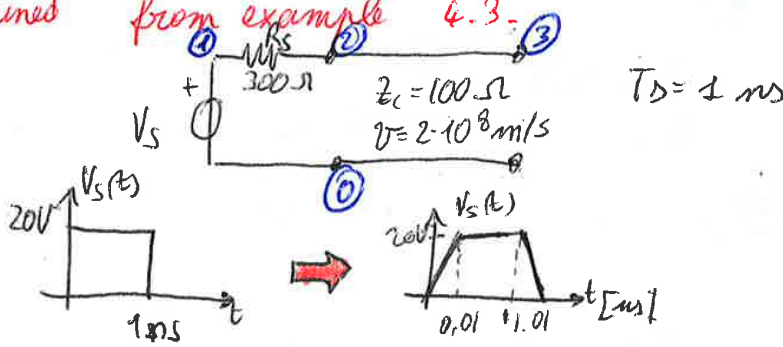 from example 4.3-
1 Rs 2 3
300 Ω
+
Vs
Zc = 100 Ω
v = 2·10⁸ m/s
TD = 1 ns
0
Vs(t)
20V
1ns
t
Vs(t)
20V
0,01
1.01
t [ns]